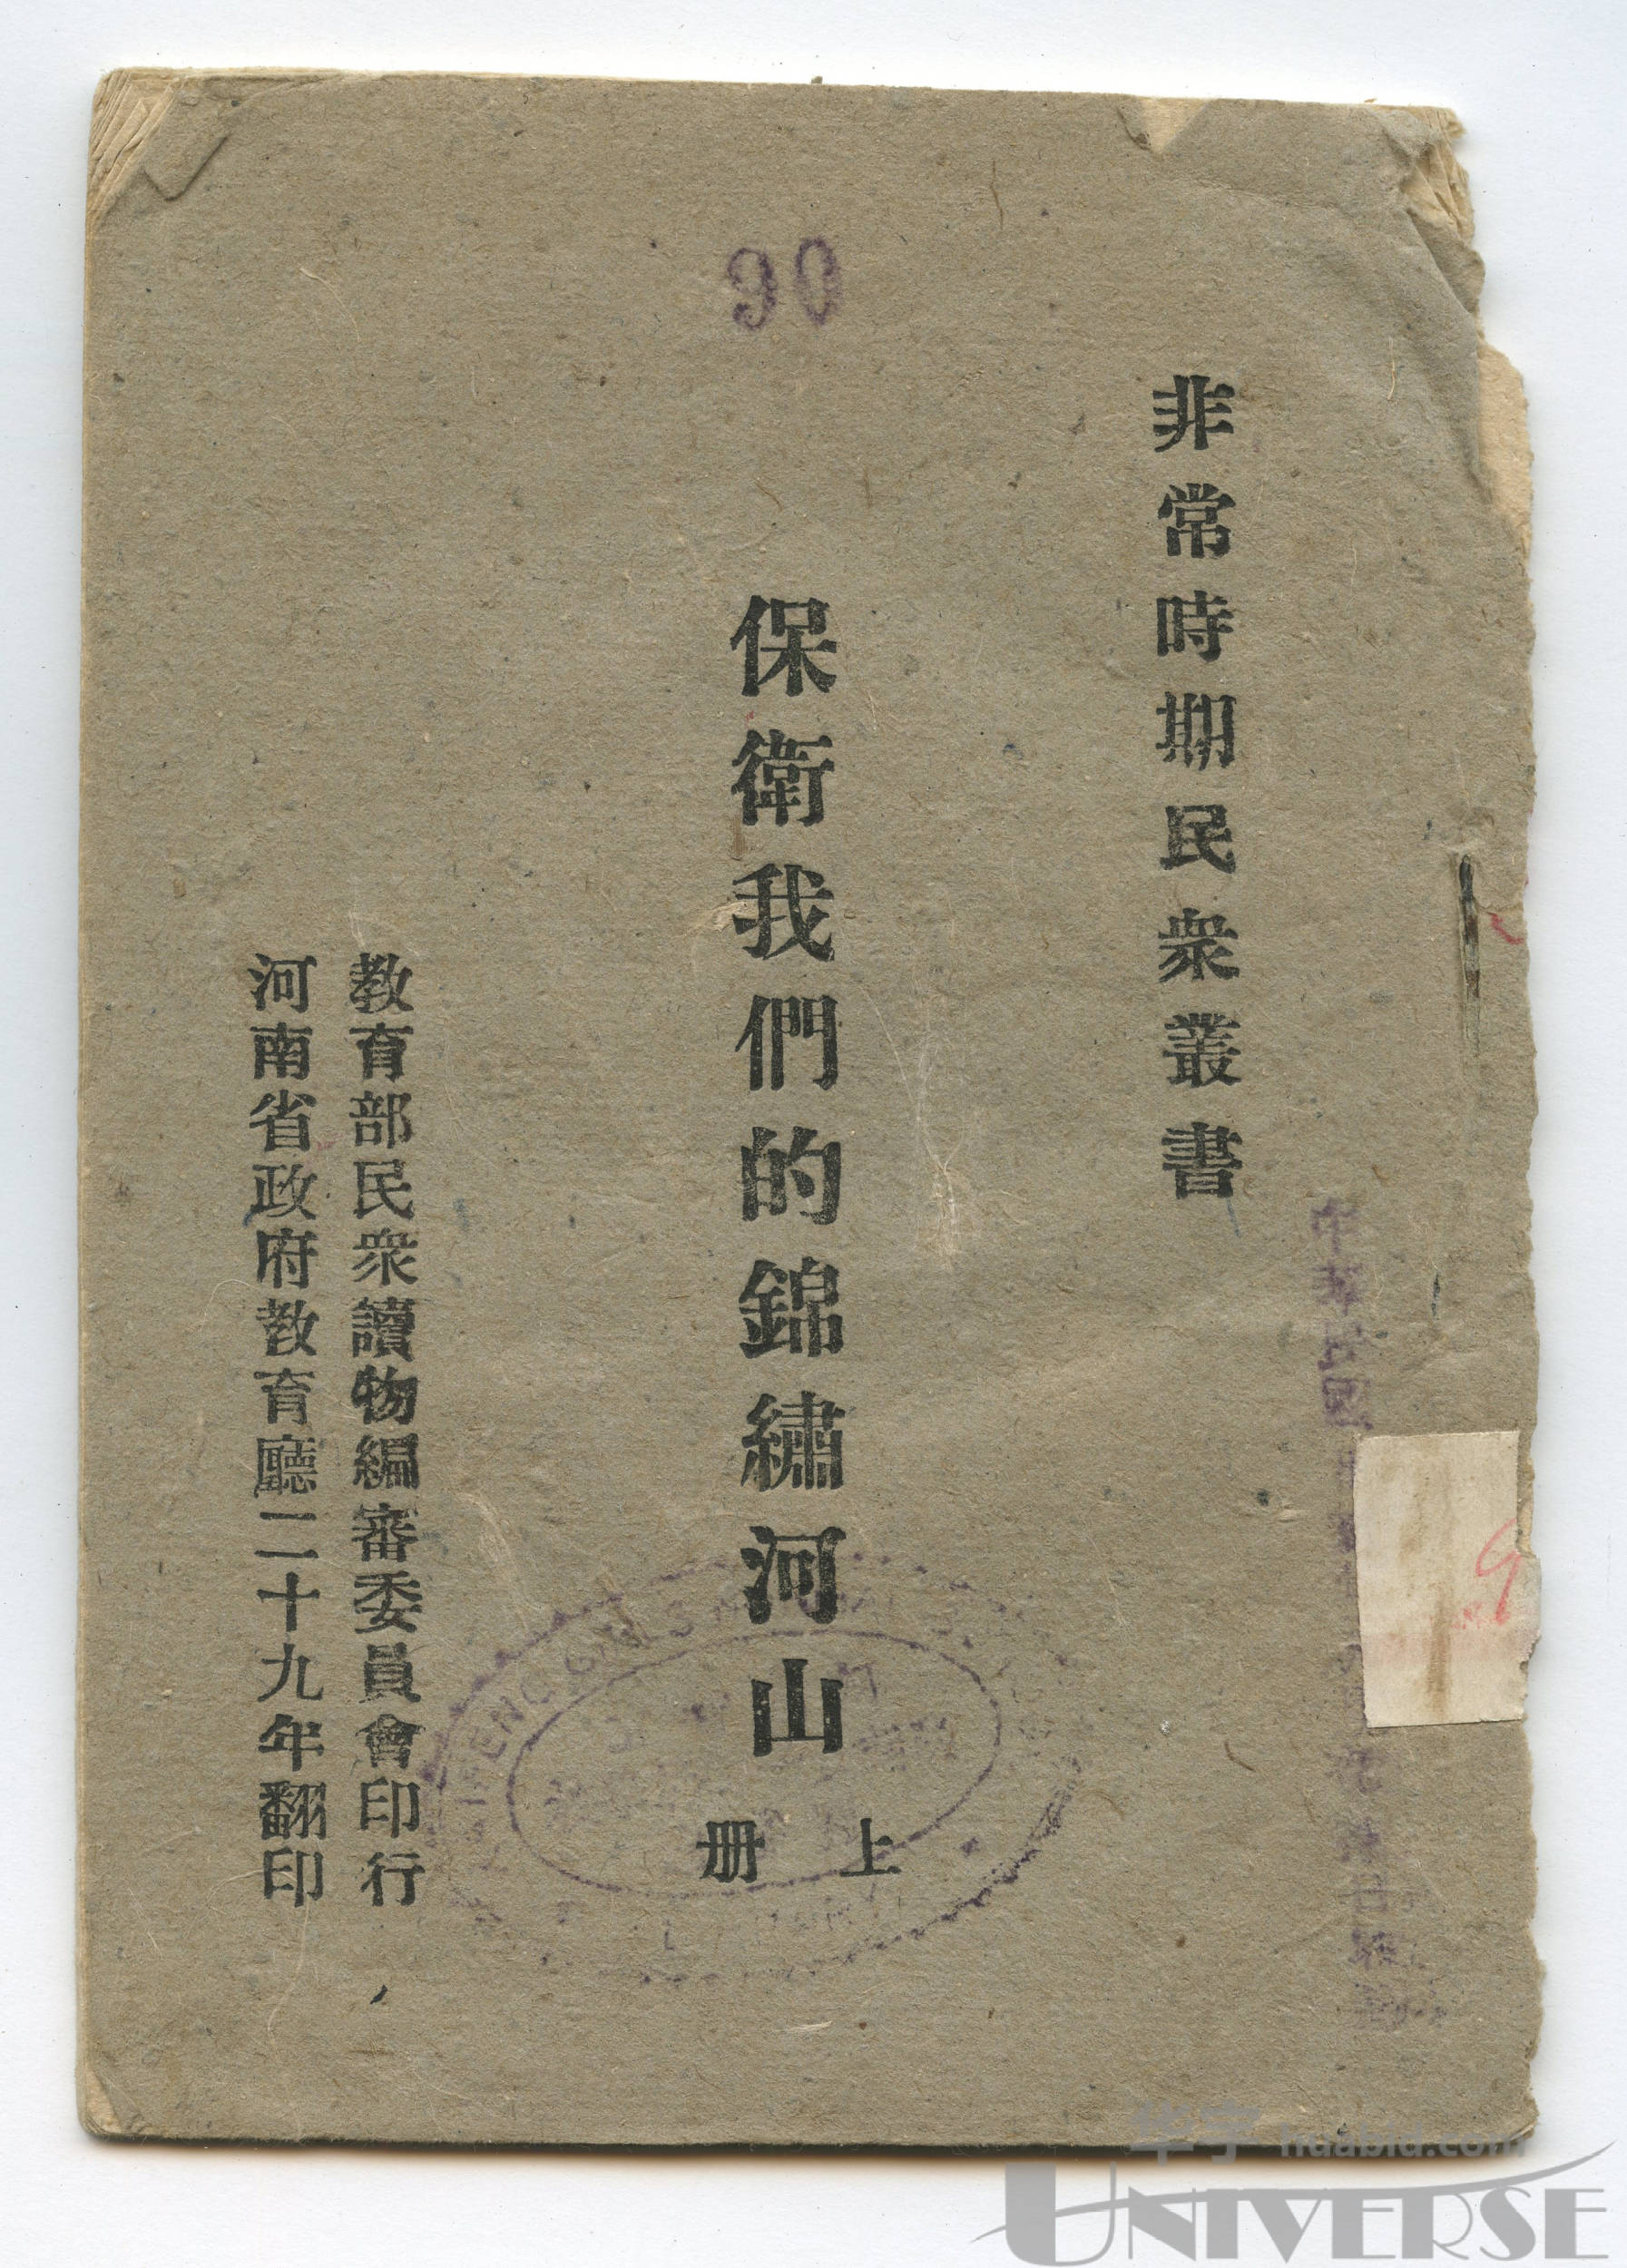 90
非常時期民衆叢書
保衛我們的錦繡河山
上册
教育部民衆讀物編審委員會印行
河南省政府教育廳二十九年翻印
中華民國
9
华宇 huabid.com
UNIVERSE